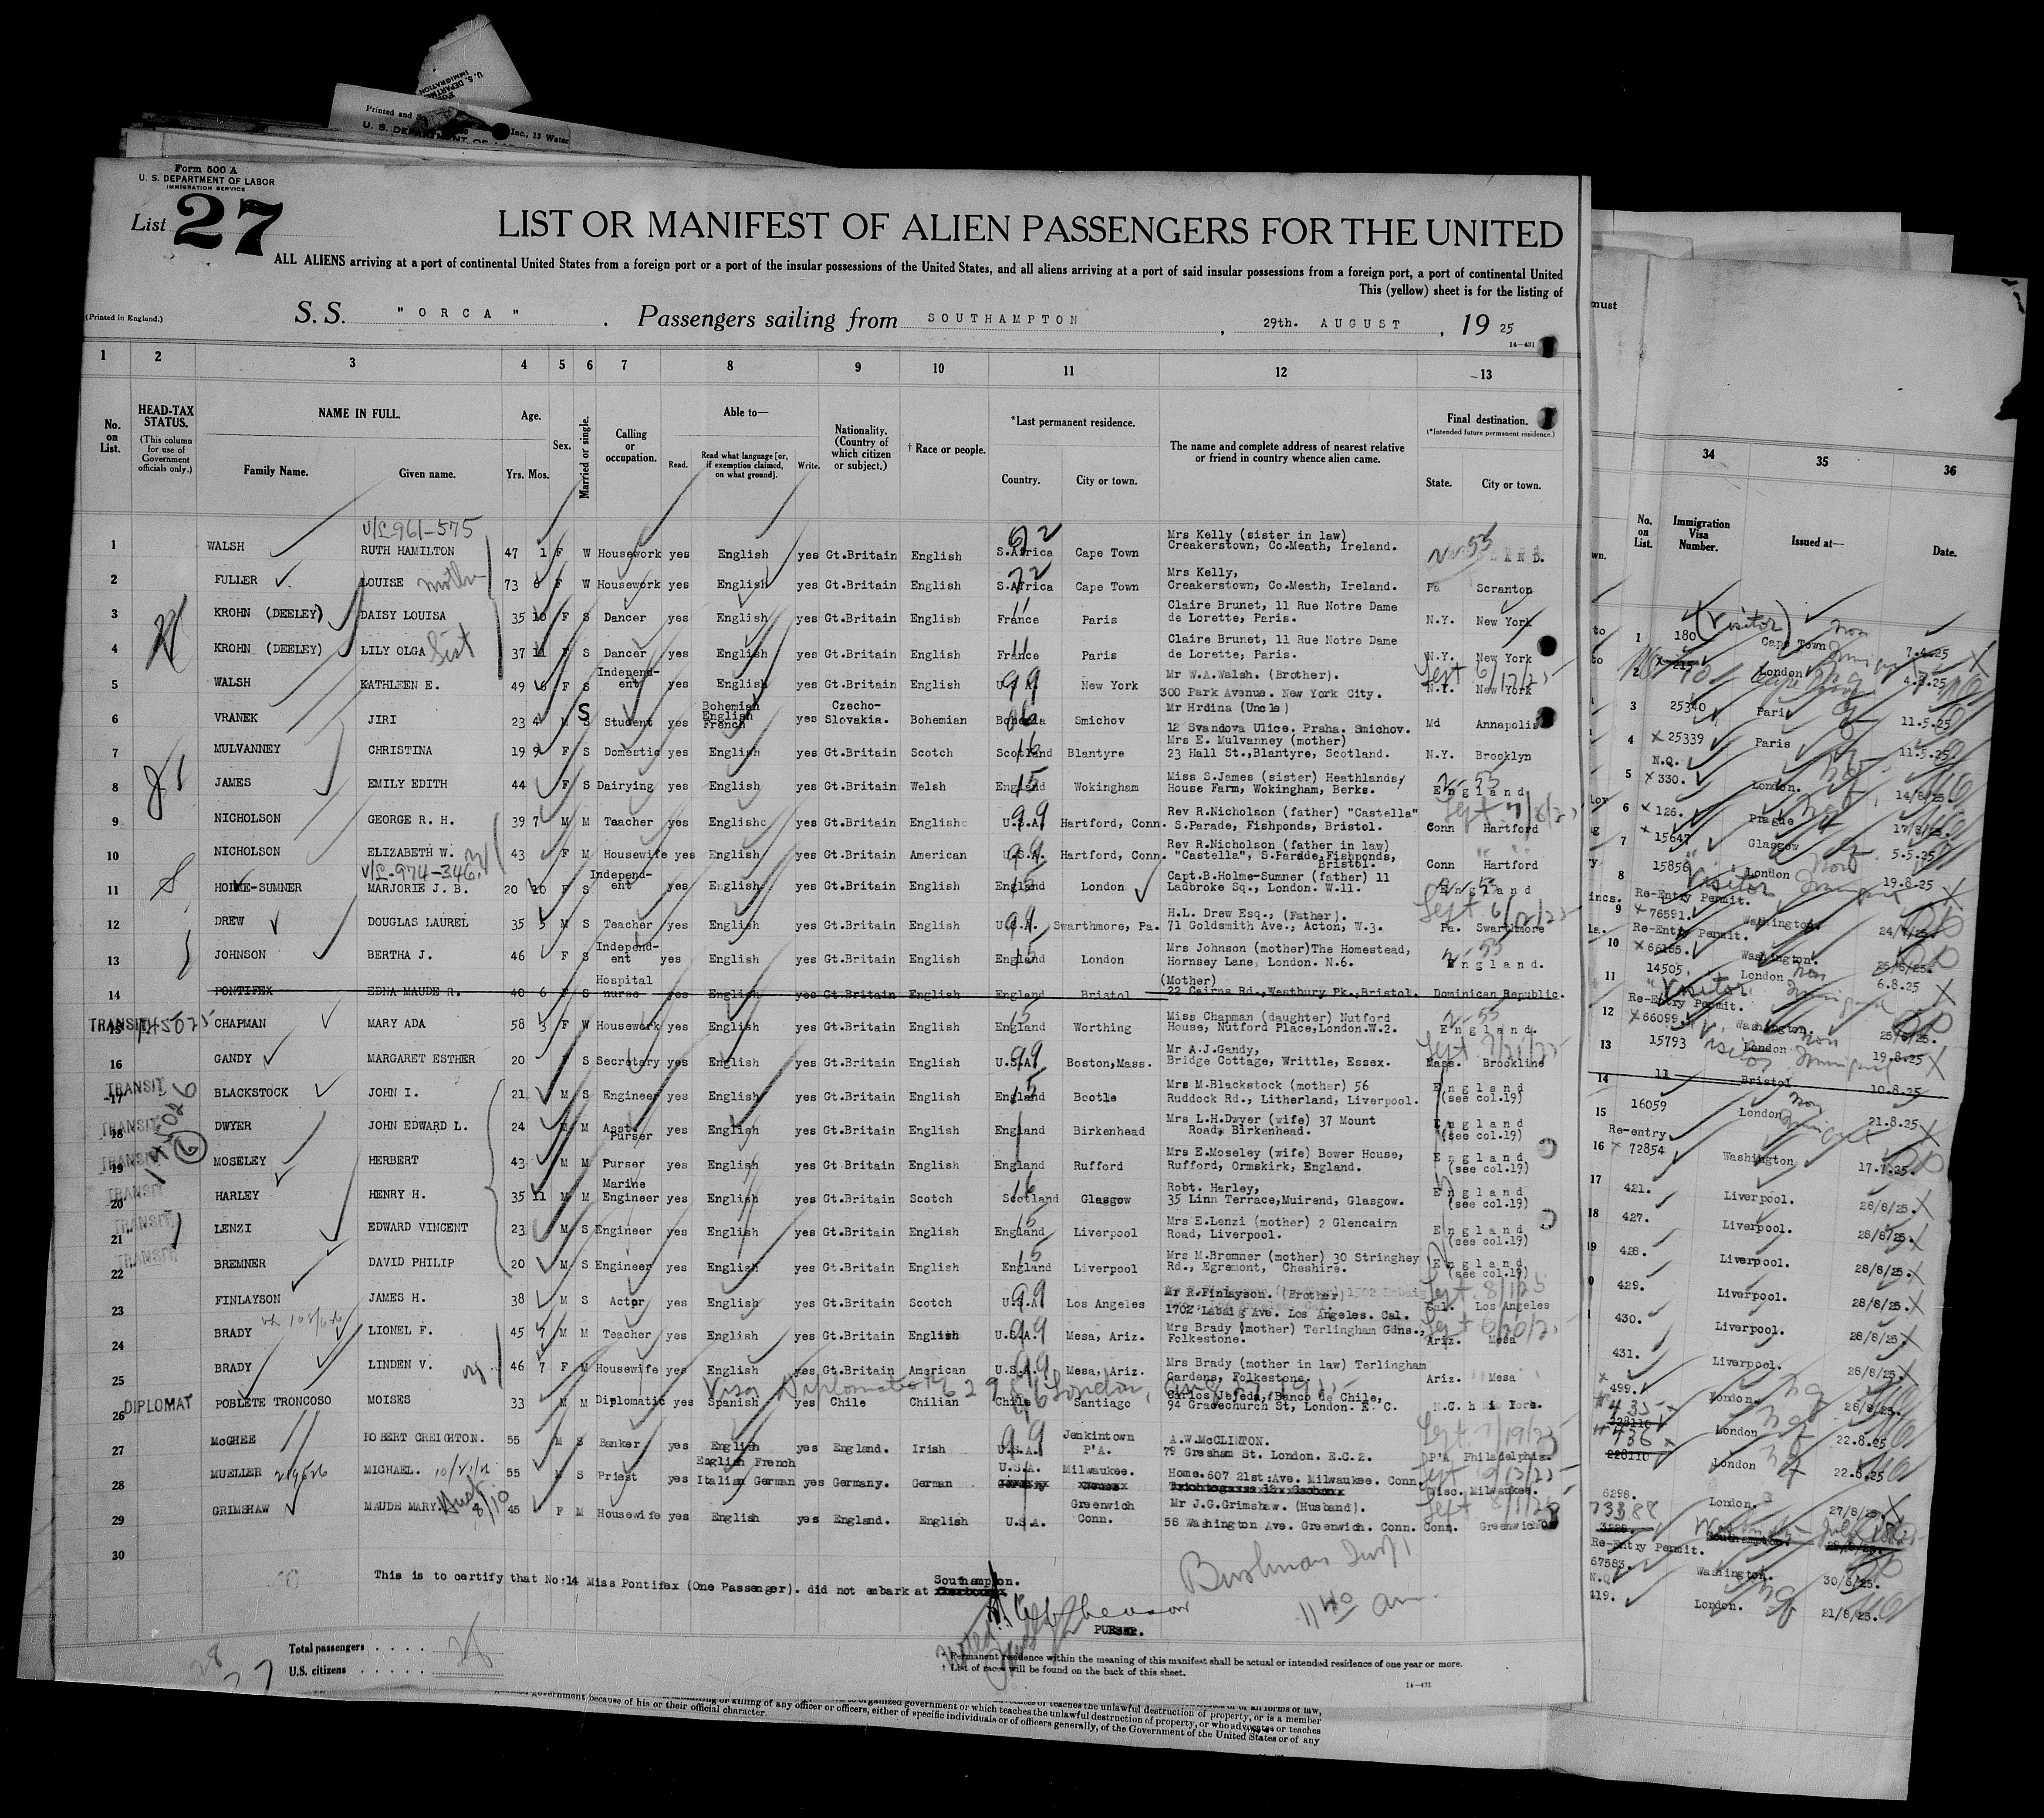 U. S. DEPARTME
IMMIGRATION
Printed and So
Inc., 13 Water
U. S. DEPARTMENT OF
Form 500 A
U. S. DEPARTMENT OF LABOR
IMMIGRATION SERVICE
List 27
LIST OR MANIFEST OF ALIEN PASSENGERS FOR THE UNITED
ALL ALIENS arriving at a port of continental United States from a foreign port or a port of the insular possessions of the United States, and all aliens arriving at a port of said insular possessions from a foreign port, a port of continental United
This (yellow) sheet is for the listing of
(Printed in England.)
S. S. "ORCA". Passengers sailing from SOUTHAMPTON, 29th. AUGUST, 19 25
14—431
1 2 3 4 5 6 7 8 9 10 11 12 13
No. on List.
HEAD-TAX STATUS.
(This column for use of Government officials only.)
NAME IN FULL.
Family Name. Given name.
Age.
Yrs. Mos.
Sex.
Married or single.
Calling or occupation.
Able to—
Read. Read what language [or, if exemption claimed, on what ground]. Write.
Nationality. (Country of which citizen or subject.)
† Race or people.
*Last permanent residence.
Country. City or town.
The name and complete address of nearest relative or friend in country whence alien came.
Final destination.
(*Intended future permanent residence.)
State. City or town.
V/L 961-575
1 WALSH RUTH HAMILTON 47 1 F W Housework yes English yes Gt.Britain English S.Africa Cape Town Mrs Kelly (sister in law) Creakerstown, Co.Meath, Ireland.
2 FULLER LOUISE mother 73 6 F W Housework yes English yes Gt.Britain English S.Africa Cape Town Mrs Kelly, Creakerstown, Co.Meath, Ireland. Pa Scranton
3 KROHN (DEELEY) DAISY LOUISA 35 10 F S Dancer yes English yes Gt.Britain English France Paris Claire Brunet, 11 Rue Notre Dame de Lorette, Paris. N.Y. New York
4 KROHN (DEELEY) LILY OLGA Sist 37 11 F S Dancer yes English yes Gt.Britain English France Paris Claire Brunet, 11 Rue Notre Dame de Lorette, Paris. N.Y. New York
5 WALSH KATHLEEN E. 49 6 F S Independ-ent yes English yes Gt.Britain English U.S.A. New York Mr W.A.Walsh. (Brother). 300 Park Avenue. New York City. N.Y. New York
6 VRANEK JIRI 23 4 M S Student yes Bohemian English French yes Czecho-Slovakia. Bohemian Bohemia Smichov Mr Hrdina (Uncle) 12 Svandova Ulice. Praha. Smichov. Md Annapolis
7 MULVANNEY CHRISTINA 19 9 F S Domestic yes English yes Gt.Britain Scotch Scotland Blantyre Mrs E. Mulvanney (mother) 23 Hall St.,Blantyre, Scotland. N.Y. Brooklyn
8 JAMES EMILY EDITH 44 F S Dairying yes English yes Gt.Britain Welsh England Wokingham Miss S.James (sister) Heathlands, House Farm, Wokingham, Berks. England
9 NICHOLSON GEORGE R. H. 39 7 M M Teacher yes English yes Gt.Britain English U.S.A. Hartford, Conn. Rev R.Nicholson (father) "Castella" S.Parade, Fishponds, Bristol. Conn Hartford
10 NICHOLSON ELIZABETH W. 43 F M Housewife yes English yes Gt.Britain American U.S.A. Hartford, Conn. Rev R.Nicholson (father in law) "Castella", S.Parade,Fishponds, Bristol. Conn Hartford
V/L-974-346
11 HOLME-SUMNER MARJORIE J. B. 20 10 F S Independ-ent yes English yes Gt.Britain English England London Capt.B.Holme-Sumner (father) 11 Ladbroke Sq., London. W.11. England
12 DREW DOUGLAS LAUREL 35 5 M S Teacher yes English yes Gt.Britain English U.S.A. Swarthmore, Pa. H.L. Drew Esq., (Father). 71 Goldsmith Ave., Acton, W.3. Pa. Swarthmore
13 JOHNSON BERTHA J. 46 F S Independ-ent yes English yes Gt.Britain English England London Mrs Johnson (mother)The Homestead, Hornsey Lane, London. N.6. England.
14 PONTIFEX EDNA MAUDE R. 40 6 F S Hospital nurse yes English yes Gt.Britain English England Bristol (Mother) 22 Cairns Rd.,Westbury Pk.,Bristol. Dominican Republic.
TRANSIT 15 CHAPMAN MARY ADA 58 3 F W Housework yes English yes Gt.Britain English England Worthing Miss Chapman (daughter) Nutford House, Nutford Place,London.W.2. England.
16 GANDY MARGARET ESTHER 20 F S Secretary yes English yes Gt.Britain English U.S.A. Boston,Mass. Mr A.J.Gandy, Bridge Cottage, Writtle, Essex. Mass. Brookline
TRANSIT 17 BLACKSTOCK JOHN I. 21 M S Engineer yes English yes Gt.Britain English England Bootle Mrs M.Blackstock (mother) 56 Ruddock Rd., Litherland, Liverpool. England (see col.19)
TRANSIT 18 DWYER JOHN EDWARD L. 24 M M Asst. Purser yes English yes Gt.Britain English England Birkenhead Mrs L.H.Dwyer (wife) 37 Mount Road, Birkenhead. England (see col.19)
TRANSIT 19 MOSELEY HERBERT 43 M M Purser yes English yes Gt.Britain English England Rufford Mrs E.Moseley (wife) Bower House, Rufford, Ormskirk, England. England (see col.19)
TRANSIT 20 HARLEY HENRY H. 35 11 M M Marine Engineer yes English yes Gt.Britain Scotch Scotland Glasgow Robt. Harley, 35 Linn Terrace,Muirend, Glasgow. England (see col.19)
TRANSIT 21 LENZI EDWARD VINCENT 23 M S Engineer yes English yes Gt.Britain English England Liverpool Mrs E.Lenzi (mother) 2 Glencairn Road, Liverpool. England (see col.19)
TRANSIT 22 BREMNER DAVID PHILIP 20 M S Engineer yes English yes Gt.Britain English England Liverpool Mrs M.Bremner (mother) 30 Stringhey Rd., Egremont, Cheshire. England (see col.19)
23 FINLAYSON JAMES H. 38 M S Actor yes English yes Gt.Britain Scotch U.S.A. Los Angeles Mr R.Finlayson. (Brother) Ave. Los Angeles. Cal. Cal. Los Angeles
24 BRADY LIONEL F. 45 7 M M Teacher yes English yes Gt.Britain English U.S.A. Mesa, Ariz. Mrs Brady (mother) Terlingham Gdns., Folkestone. Ariz. Mesa
25 BRADY LINDEN V. 46 7 F M Housewife yes English yes Gt.Britain American U.S.A. Mesa, Ariz. Mrs Brady (mother in law) Terlingham Gardens, Folkestone. Ariz. Mesa
Visa Diplomatic London,
DIPLOMAT 26 POBLETE TRONCOSO MOISES 33 M M Diplomatic yes Spanish yes Chile Chilian Chile Santiago Banco de Chile, 94 Gracechurch St, London. E. C.
27 McGHEE ROBERT CREIGHTON. 55 M S Banker yes English yes England. Irish U.S.A. Jenkintown P'A. A.W.McCLINTON. 79 Gresham St. London. E.C.2. P'A Philadelphia.
28 MUELLER MICHAEL. 55 M S Priest yes English French Italian German yes Germany. German U.S.A. Milwaukee. Home.607 21st:Ave. Milwaukee. Conn. Wisc. Milwaukee.
29 GRIMSHAW MAUDE MARY. 45 F M Housewife yes English yes England. English U.S.A. Greenwich Conn. Mr J.G.Grimshaw. (Husband). 58 Washington Ave. Greenwich. Conn. Conn. Greenwich
30
This is to certify that No:14 Miss Pontifex (One Passenger). did not embark at Southampton.
PURSER.
11 40 am.
Total passengers . . . .
U.S. citizens . . . . .
* Permanent residence within the meaning of this manifest shall be actual or intended residence of one year or more.
† List of races will be found on the back of this sheet.
14—432
34 35 36
No. on List. Immigration Visa Number. Issued at— Date.
1 180 (Visitor) Cape Town 7.4.25
2 215 London 4.8.25
3 25340 Paris 11.5.25
4 25339 Paris 11.5.25
N.Q.
5 330. London. 14/8/25.
6 126. Prague 17/8/25.
7 15647 Glasgow 5.5.25
8 15856 London 19.8.25
Visitor
Re-Entry Permit.
9 76591. Washington. 24/7/25.
Re-Entry Permit.
10 66165. Washington. 25/6/25.
11 14505. London 6.8.25
"Visitor"
Re-Entry Permit.
12 66099. Washington. 25/6/25.
13 15793 London 19.8.25
14 11 Bristol 10.8.25
15 16059 London 21.8.25
Re-entry
16 72854 Washington 17.7.25.
17 421. Liverpool. 28/8/25.
18 427. Liverpool. 28/8/25.
19 428. Liverpool. 28/8/25.
429. Liverpool. 28/8/25.
430. Liverpool. 28/8/25.
431. Liverpool. 28/8/25.
499. London. 28/8/25.
435 228110 London 22.8.25
436 228110 London 22.8.25
6298. London. 27/8/25.
73388 3228. Southampton.
Re-Entry Permit.
67583. Washington. 30/6/25.
N.Q.
419. London. 21/8/25.
government because of his or their official character.
teaches the unlawful destruction of property, or is a member
killing of any officer or officers, either of specific individuals or of officers generally, of the Government of the United States or of any